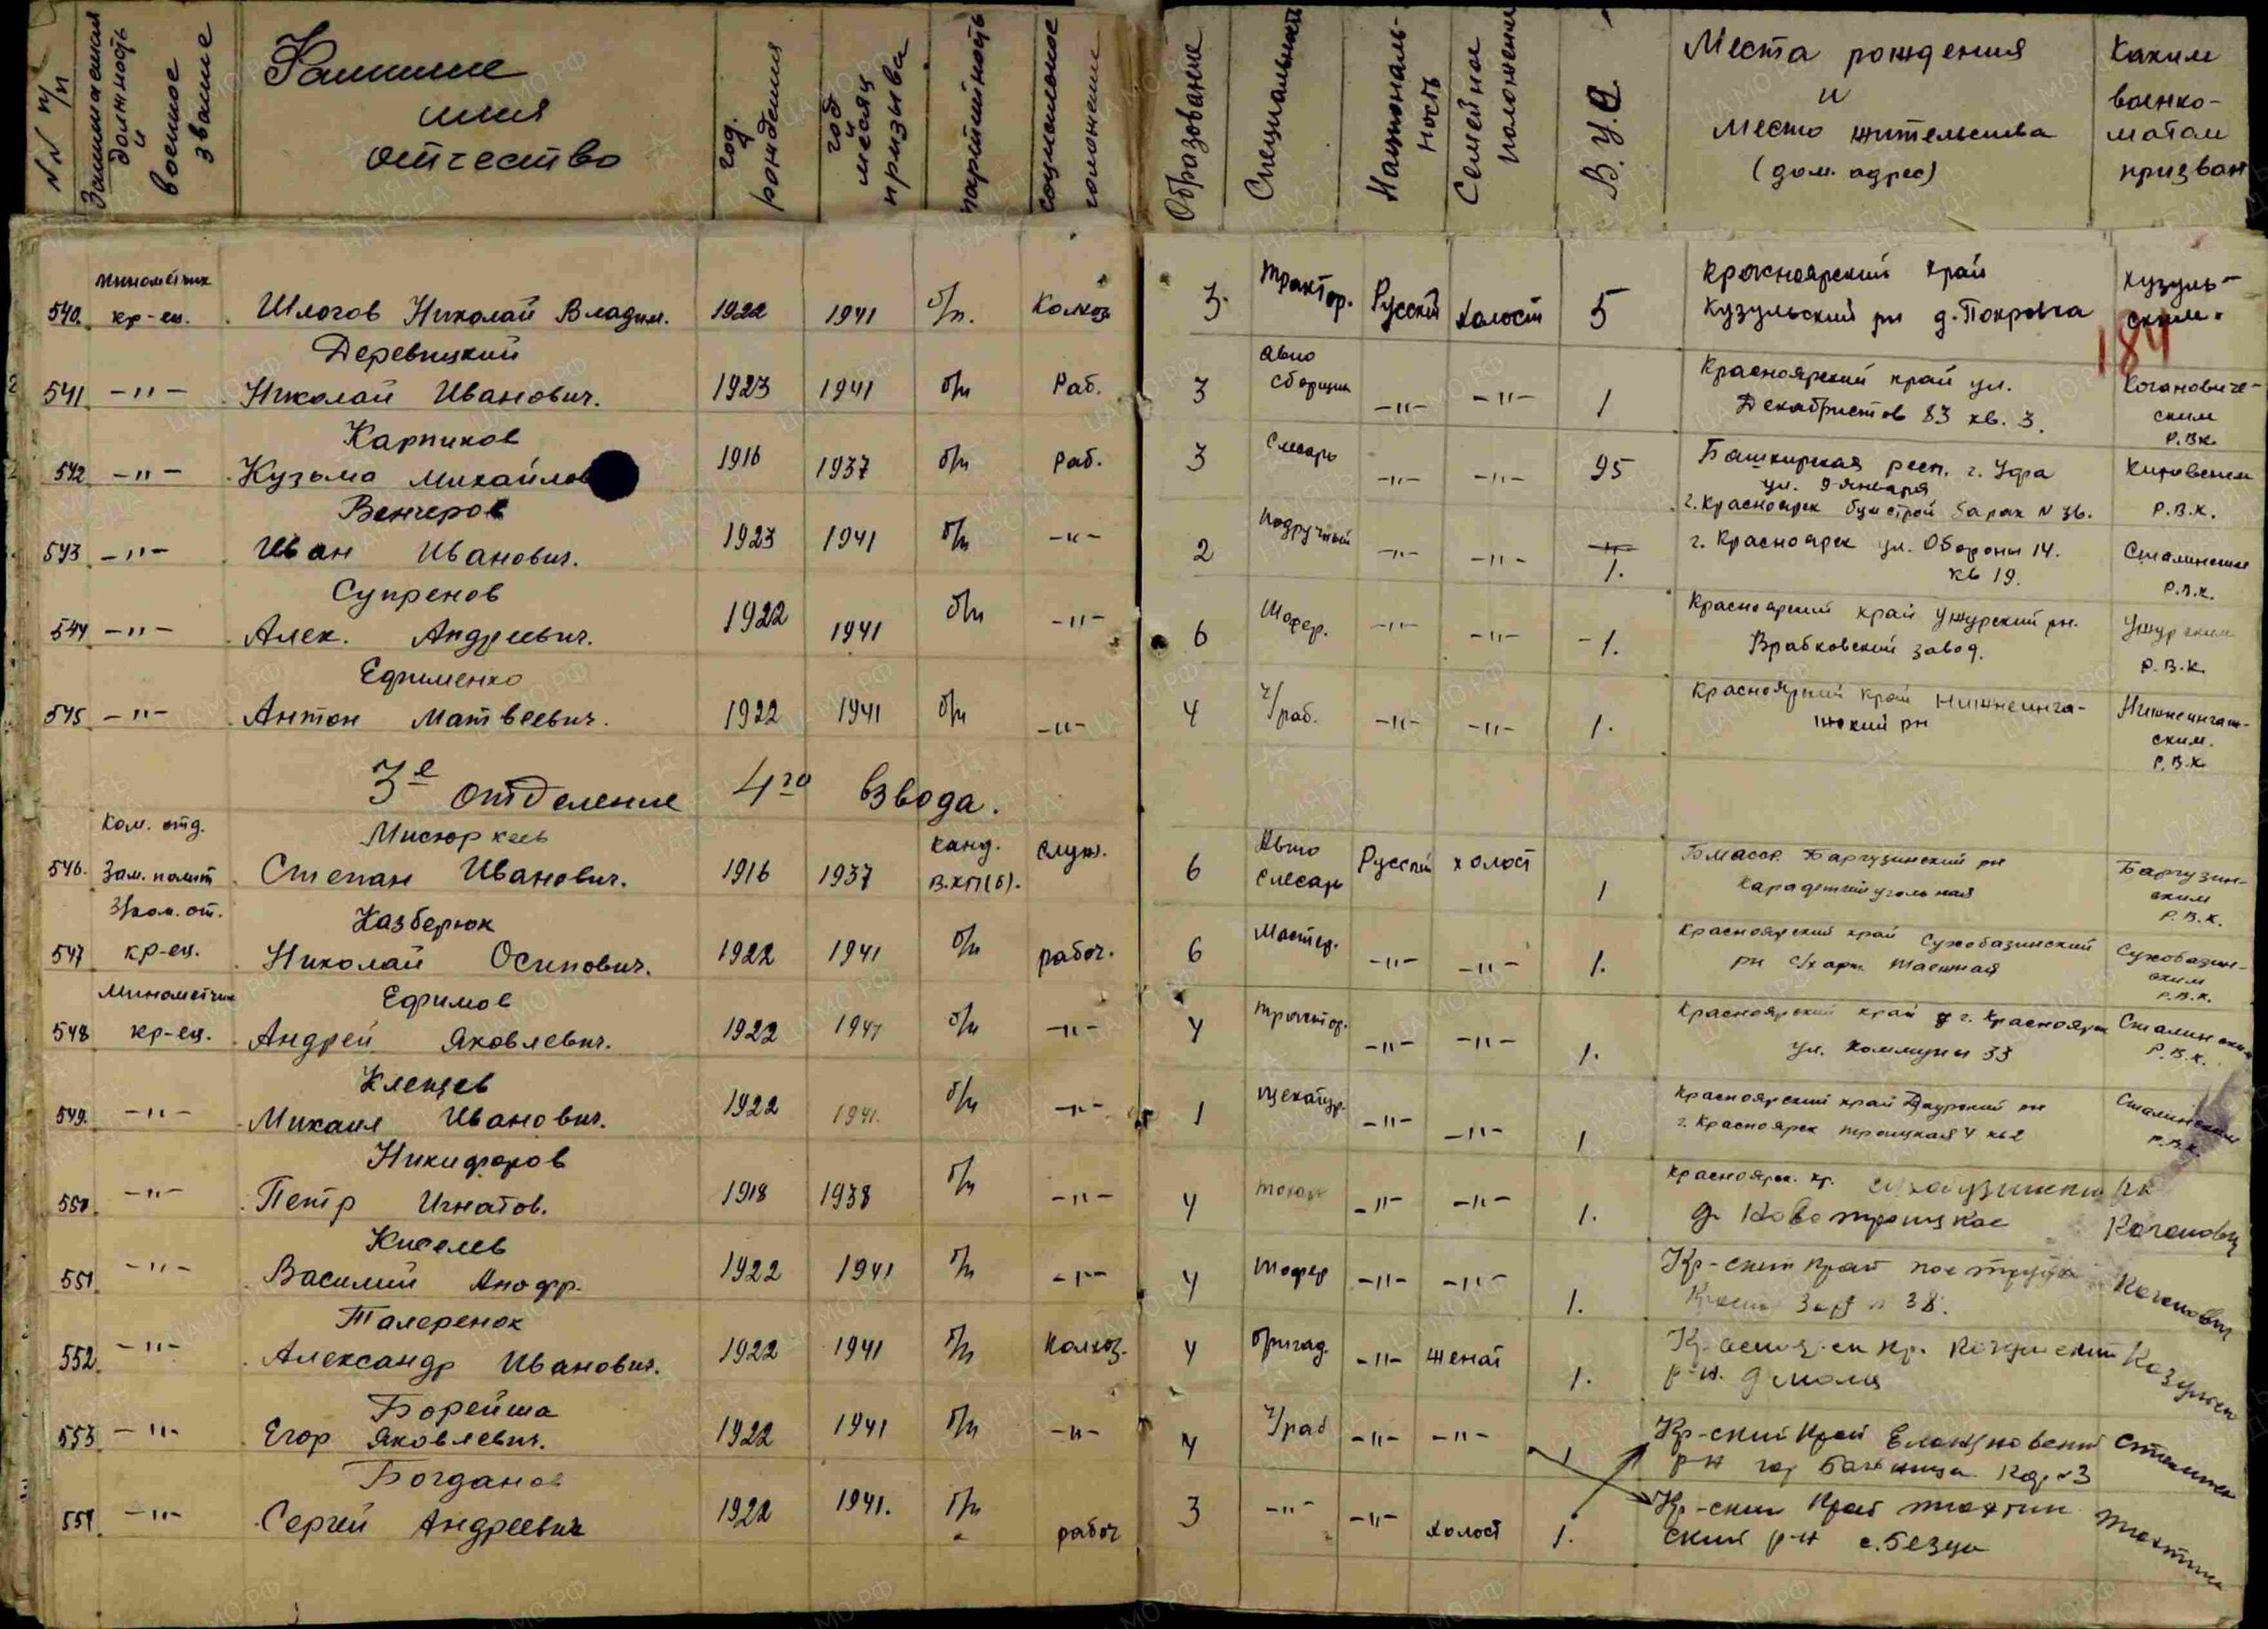 NN п/п
Занимаемая должность и военное звание
Фамилие имя отчество
год рождения
год и месяц призыва
партийность
социальное положение
Образование
Специальность
Националь-ность
Семейное положение
В.У.С.
Места рождения и место жительства (дом. адрес)
Каким военко-матом призван
184
540. минометчик кр-ец. Шлогов Николай Владим. 1922 1941 б/п. Колхоз 3. Трактор. Русский холост 5 Красноярский край Кузульский рн д. Покровка Кузуль-ским.
541 -"- Деревицкий Николай Иванович. 1923 1941 б/п Раб. 3 авто сборщик -"- -"- 1 Красноярский край ул. Декабристов 83 кв. 3. Коганович-ским Р.Вк.
542 -"- Карпиков Кузьма Михайлов 1916 1937 б/п Раб. 3 Слесарь -"- -"- 95 Башкирская респ. г. Уфа ул. 9 января г. Красноярск бумстрой барак N 36. Кировским Р.В.К.
543 -"- Венчеров Иван Иванович. 1923 1941 б/п -"- 2 подручный -"- -"- 1. г. Красноярск ул. Обороны 14. кв 19. Сталинским Р.В.К.
544 -"- Супренов Алек. Андреевич. 1922 1941 б/п -"- 6 Шофер. -"- -"- -1. Красноярский край Ужурский рн. Врабковский завод. Ужурским Р.В.К
545 -"- Ефименко Антон Матвеевич. 1922 1941 б/п -"- 4 ч/раб. -"- -"- 1. Красноярский край Нижнеинга-шский рн Нижнеингаш-ским. Р.В.К
3е отделение 4го взвода.
546. Ком. отд. Зам. полит Мисюркеев Степан Иванович. 1916 1937 канд. В.КП(б). служ. 6 Авто слесарь Русский холост 1 БМАССР. Баргузинский рн Баргузин-ским Р.В.К.
547 З/ком. от. кр-ец. Казберюк Николай Осипович. 1922 1941 б/п рабоч. 6 Мастер. -"- -"- 1. Красноярский край Сухобазинский рн с/х арт. Таежная Сухобазин-ским Р.В.К.
548 Минометчик кр-ец. Ефимов Андрей Яковлевич. 1922 1941 б/п -"- 4 трактор. -"- -"- 1. Красноярский край г. Красноярск ул. Коммуны 33 Сталинским Р.В.К.
549. -"- Клещев Михаил Иванович. 1922 1941. б/п -"- 1 щекатур. -"- -"- 1 Красноярский край Даурский рн г. Красноярск троицкая 4 кв 2 Сталинским Р.В.К.
550. -"- Никифоров Петр Игнатов. 1918 1938 б/п -"- 4 токарь -"- -"- 1. Красноярск. кр. Сухобузимски рн д. Новотроицкое Коганович
551. -"- Киселев Василий Анофр. 1922 1941 б/п -"- 4 шофер -"- -"- 1. Кр-ский край 38. Коганович
552. -"- Талеренок Александр Иванович. 1922 1941 б/п Колхоз. 4 бригад. -"- женат 1. р-н. Козульск
553 -"- Борейша Егор Яковлевич. 1922 1941 б/п -"- 4 ч/раб -"- -"- 1 Кр-ский край р-н
554. -"- Богданов Сергей Андреевич 1922 1941. б/п рабоч 3 -"- -"- холост 1. Кр-ский край ский р-н